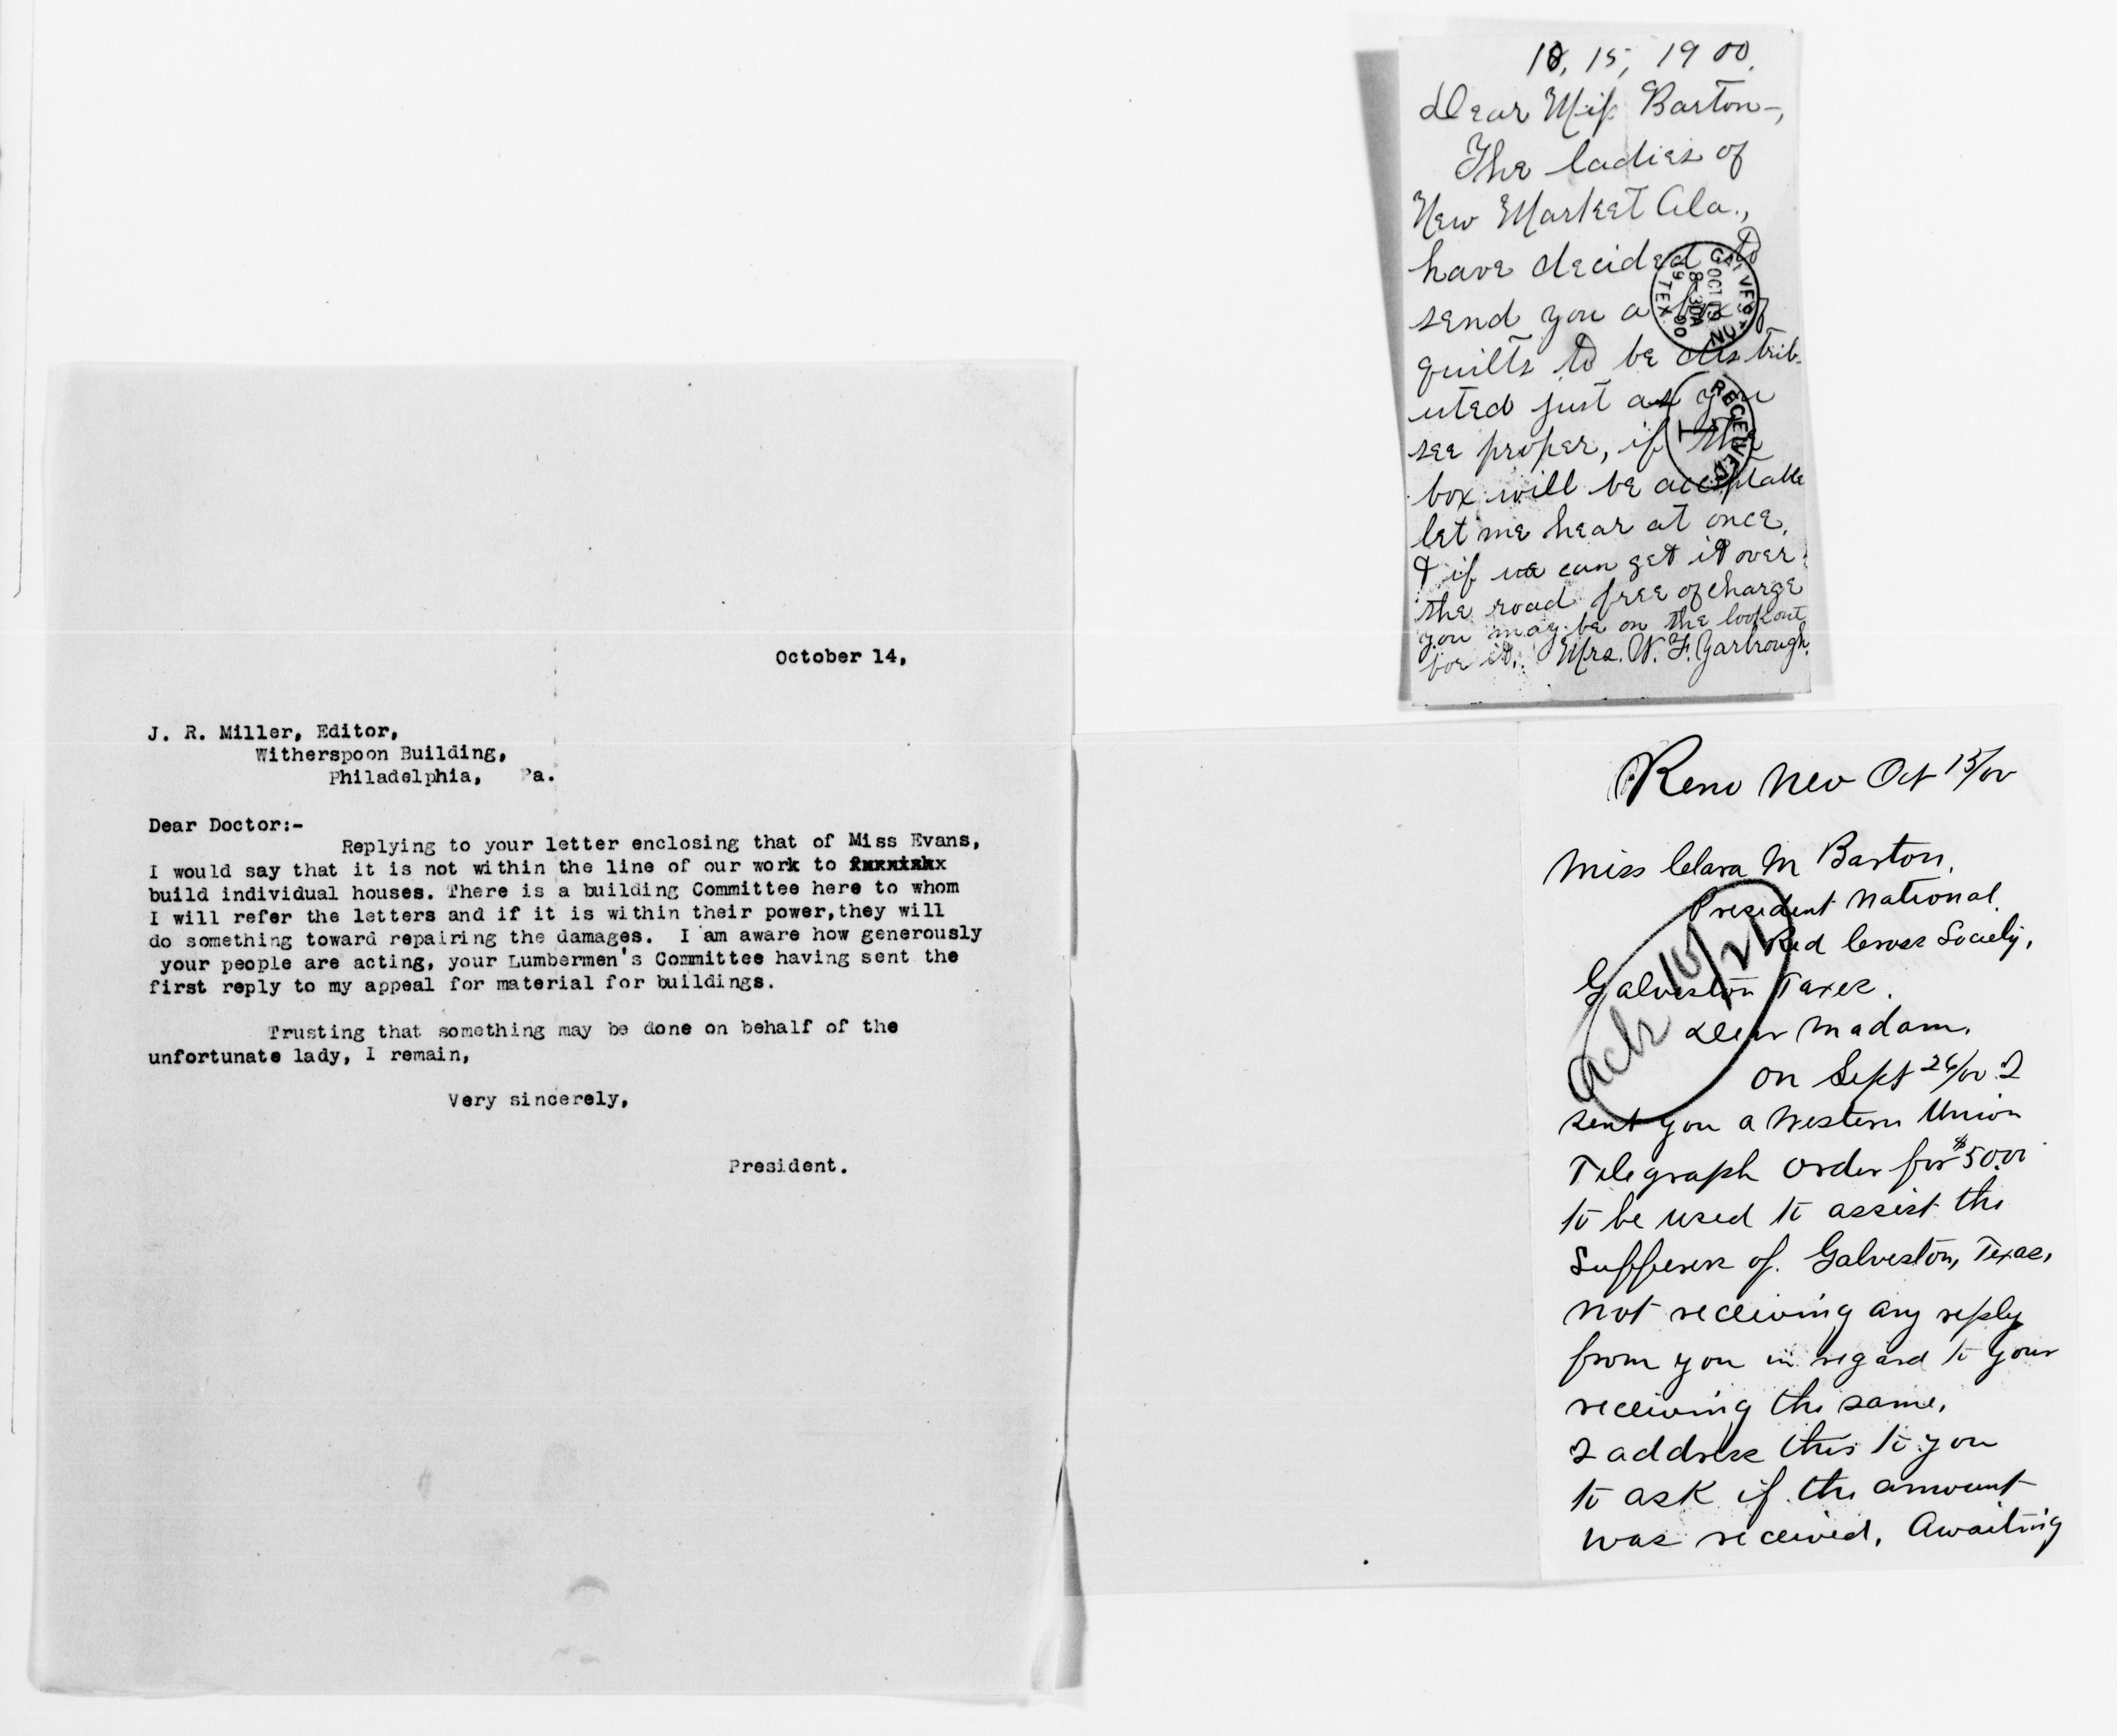 October 14,
J. R. Miller, Editor,
Witherspoon Building,
Philadelphia, Pa.
Dear Doctor:-
Replying to your letter enclosing that of Miss Evans,
I would say that it is not within the line of our work to
build individual houses. There is a building Committee here to whom
I will refer the letters and if it is within their power,they will
do something toward repairing the damages. I am aware how generously
your people are acting, your Lumbermen's Committee having sent the
first reply to my appeal for material for buildings.
Trusting that something may be done on behalf of the
unfortunate lady, I remain,
Very sincerely,
President.
10, 15, 1900.
Dear Miss Barton-,
The ladies of
New Market Ala.,
have decided to
send you a box of
quilts to be distrib-
uted just as you
see proper, if the
box will be acceptable
let me hear at once,
& if we can get it over
the road free of charge
you may be on the lookout
for it. Mrs. W. F. Yarbrough.
GALVESTON
OCT 19
8-30A
TEX. 00
RECEIVED.
1
Reno Nev Oct 15/00
Miss Clara M Barton.
President National
Red Cross Society,
Galveston Taxes.
Dear Madam,
Ack 10/21
On Sept 26/00 I
sent you a Western Union
Telegraph Order for $50.00
to be used to assist the
Sufferers of Galveston, Texas,
not receiving any reply
from you in regard to your
receiving the same,
I address this to you
to ask if the amount
was received. Awaiting